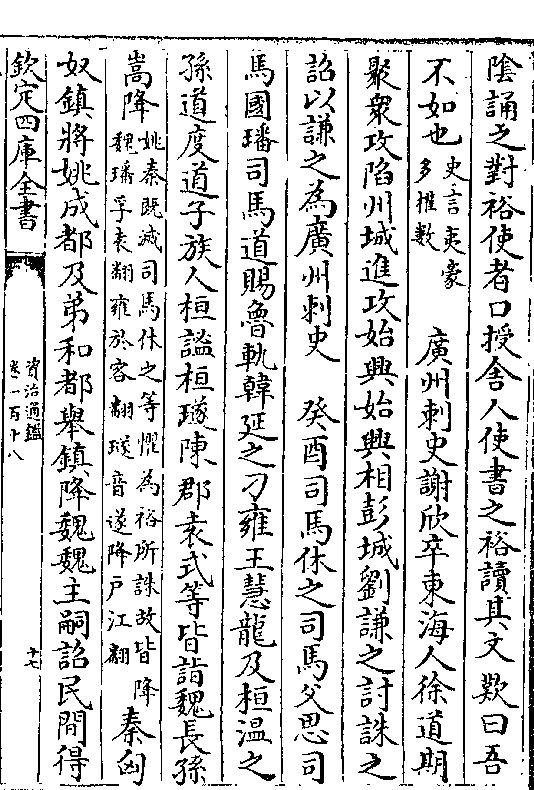 隂誦之對裕使者口授舍人使書之裕讀其文歎曰吾
不如也史言夷豪多權數　廣州刺史謝欣卒東海人徐道期
聚衆攻陷州城進攻始興始興相彭城劉謙之討誅之
詔以謙之為廣州刺史　癸酉司馬休之司馬父思司
馬國璠司馬道賜魯軌韓延之刁雍王慧龍及桓温之
孫道度道子族人桓謐桓璲陳郡袁式等皆詣魏長孫
嵩降姚秦既滅司馬休之等懼為裕所誅故皆降魏璠孚袁翻雍於容翻璲音遂降戶江翻秦匈
奴鎮將姚成都及弟和都舉鎮降魏魏主嗣詔民間得
欽定四庫全書
資治通鑑
卷一百十八
十七